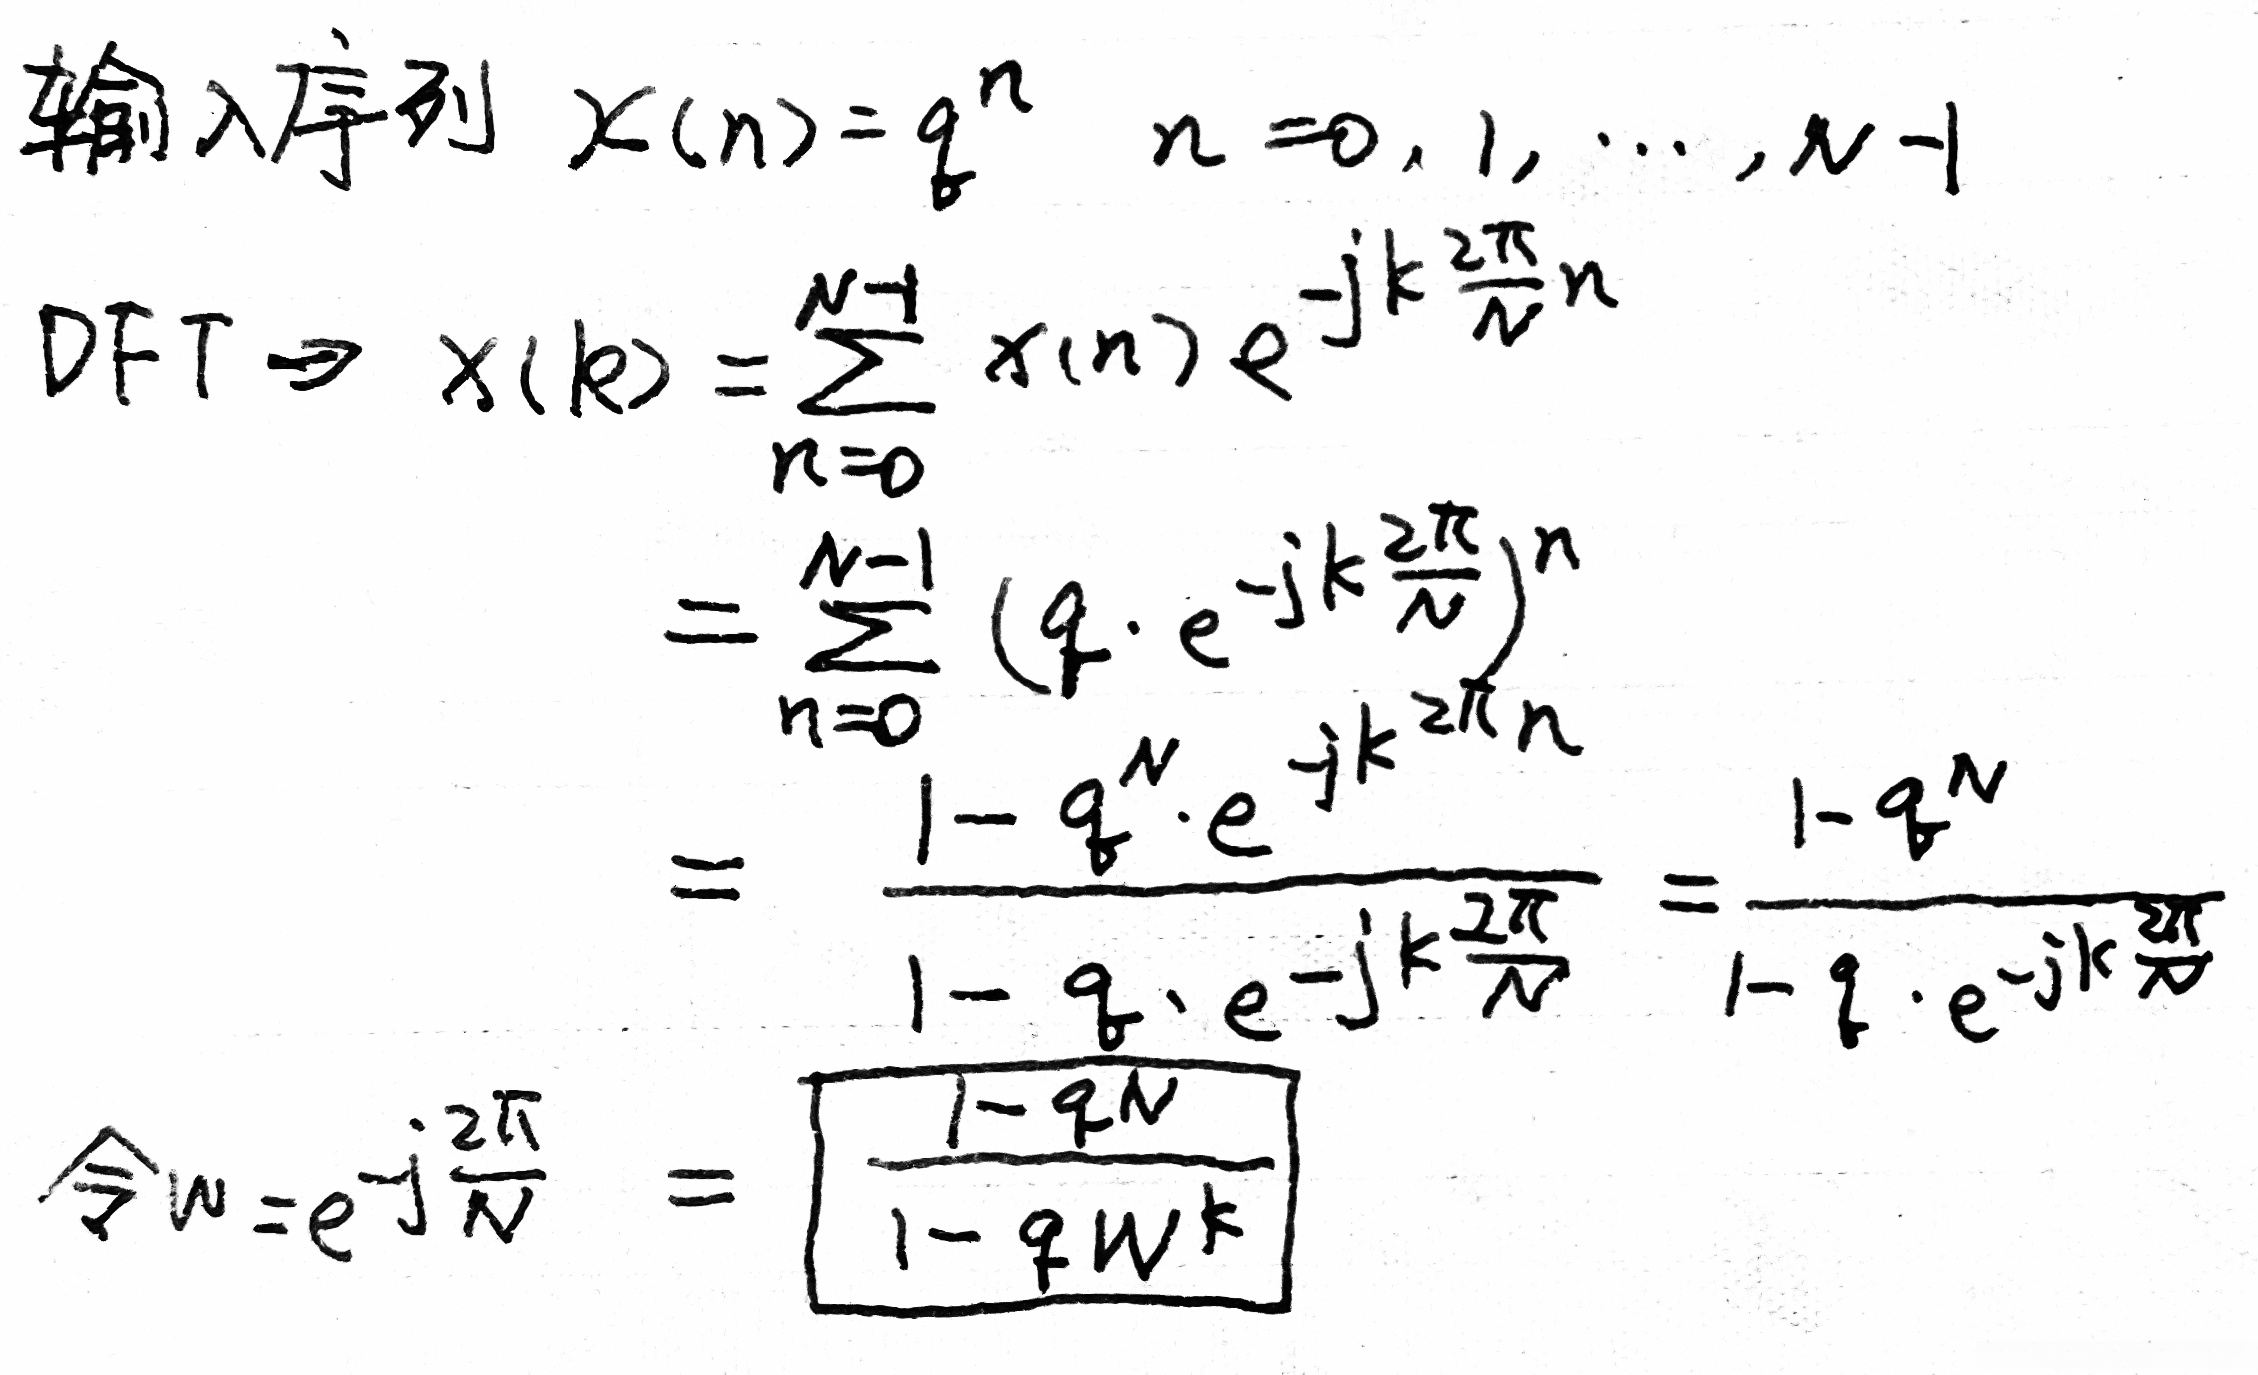 输入序列 x(n)=q^n n=0,1,···,N-1
DFT → X(k) = \sum_{n=0}^{N-1} x(n) e^{-jk\frac{2π}{N}n}
= \sum_{n=0}^{N-1} (q·e^{-jk\frac{2π}{N}})^n
= \frac{1-q^N·e^{-jk2πn}}{1-q·e^{-jk\frac{2π}{N}}} = \frac{1-q^N}{1-q·e^{-jk\frac{2π}{N}}}
令W=e^{-j\frac{2π}{N}} = \frac{1-q^N}{1-qW^k}